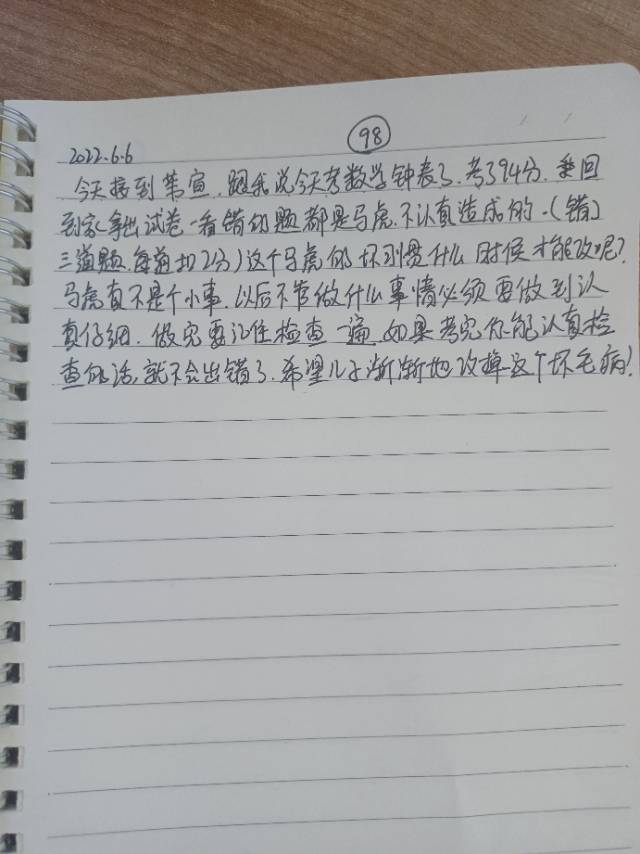 98
2022.6.6
今天接到常宣,跟我说今天考数学钟表了.考了94分.来回
到家拿出试卷一看错的题都是马虎.不认真造成的.(错)
三道题.每道扣2分)这个马虎的坏习惯什么时候才能改呢?
马虎真不是个小事.以后不管做什么事情必须要做到认
真仔细.做完要记住检查一遍.如果考完你能认真检
查的话,就不会出错了.希望儿子渐渐地改掉这个坏毛病!